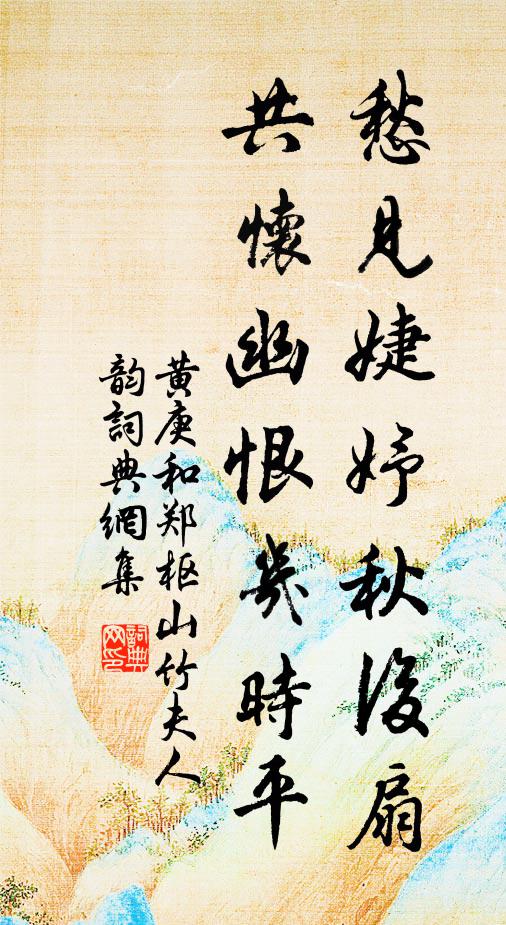 愁見婕妤秋後扇
共懷幽恨幾時平
黃庚和郑枢山竹夫人
韵詞典網集
詞典网印